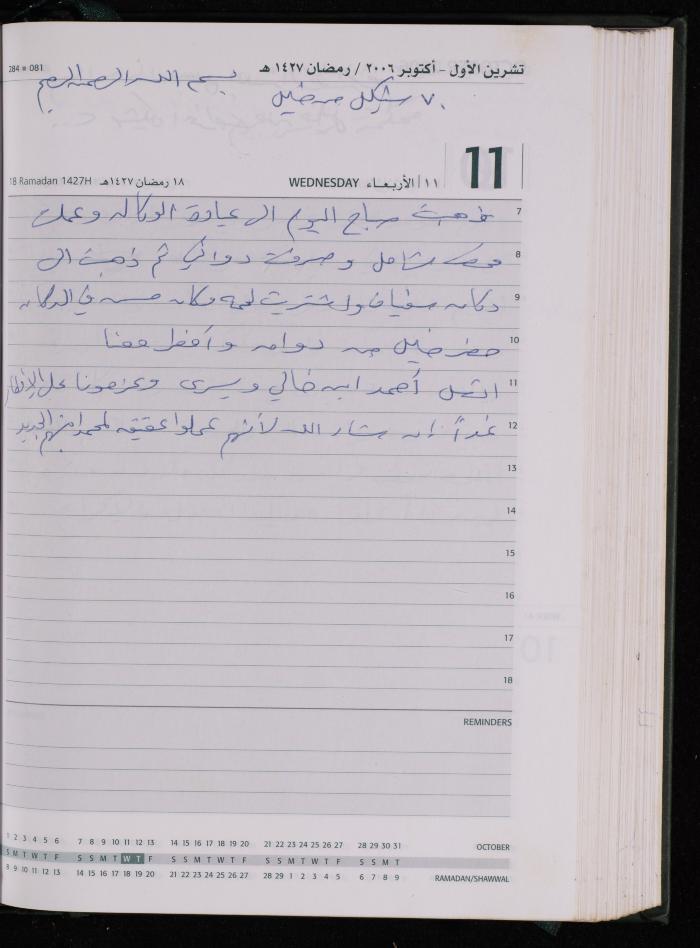 284 = 081
تشرين الأول - أكتوبر ٢٠٠٦ / رمضان ١٤٢٧ هـ
بسم الله الرحمن الرحيم
٧٠ شيكل من خليل
11
١١ | الأربعاء WEDNESDAY
١٨ رمضان ١٤٢٧هـ 18 Ramadan 1427H
7 ذهبت صباح اليوم الى عيادة الوكاله وعملت
8 فحص شامل وصرفت دوائي ثم ذهبت الى
9 دكانه سفيان واشتريت لحمه وكان حسن في الدكان
10 حضر خليل من دوامه وأفطر معنا
11 اتصل أحمد ابن خالي ويسرى وعزمونا على الإفطار
12 غداً إن شاء الله لأنهم عملوا عقيقه لمحمد ابنهم الجديد
13
14
15
16
17
18
REMINDERS
1 2 3 4 5 6 7 8 9 10 11 12 13 14 15 16 17 18 19 20 21 22 23 24 25 26 27 28 29 30 31 OCTOBER
S M T W T F S S M T W T F S S M T W T F S S M T W T F S S M T
8 9 10 11 12 13 14 15 16 17 18 19 20 21 22 23 24 25 26 27 28 29 1 2 3 4 5 6 7 8 9 RAMADAN/SHAWWAL